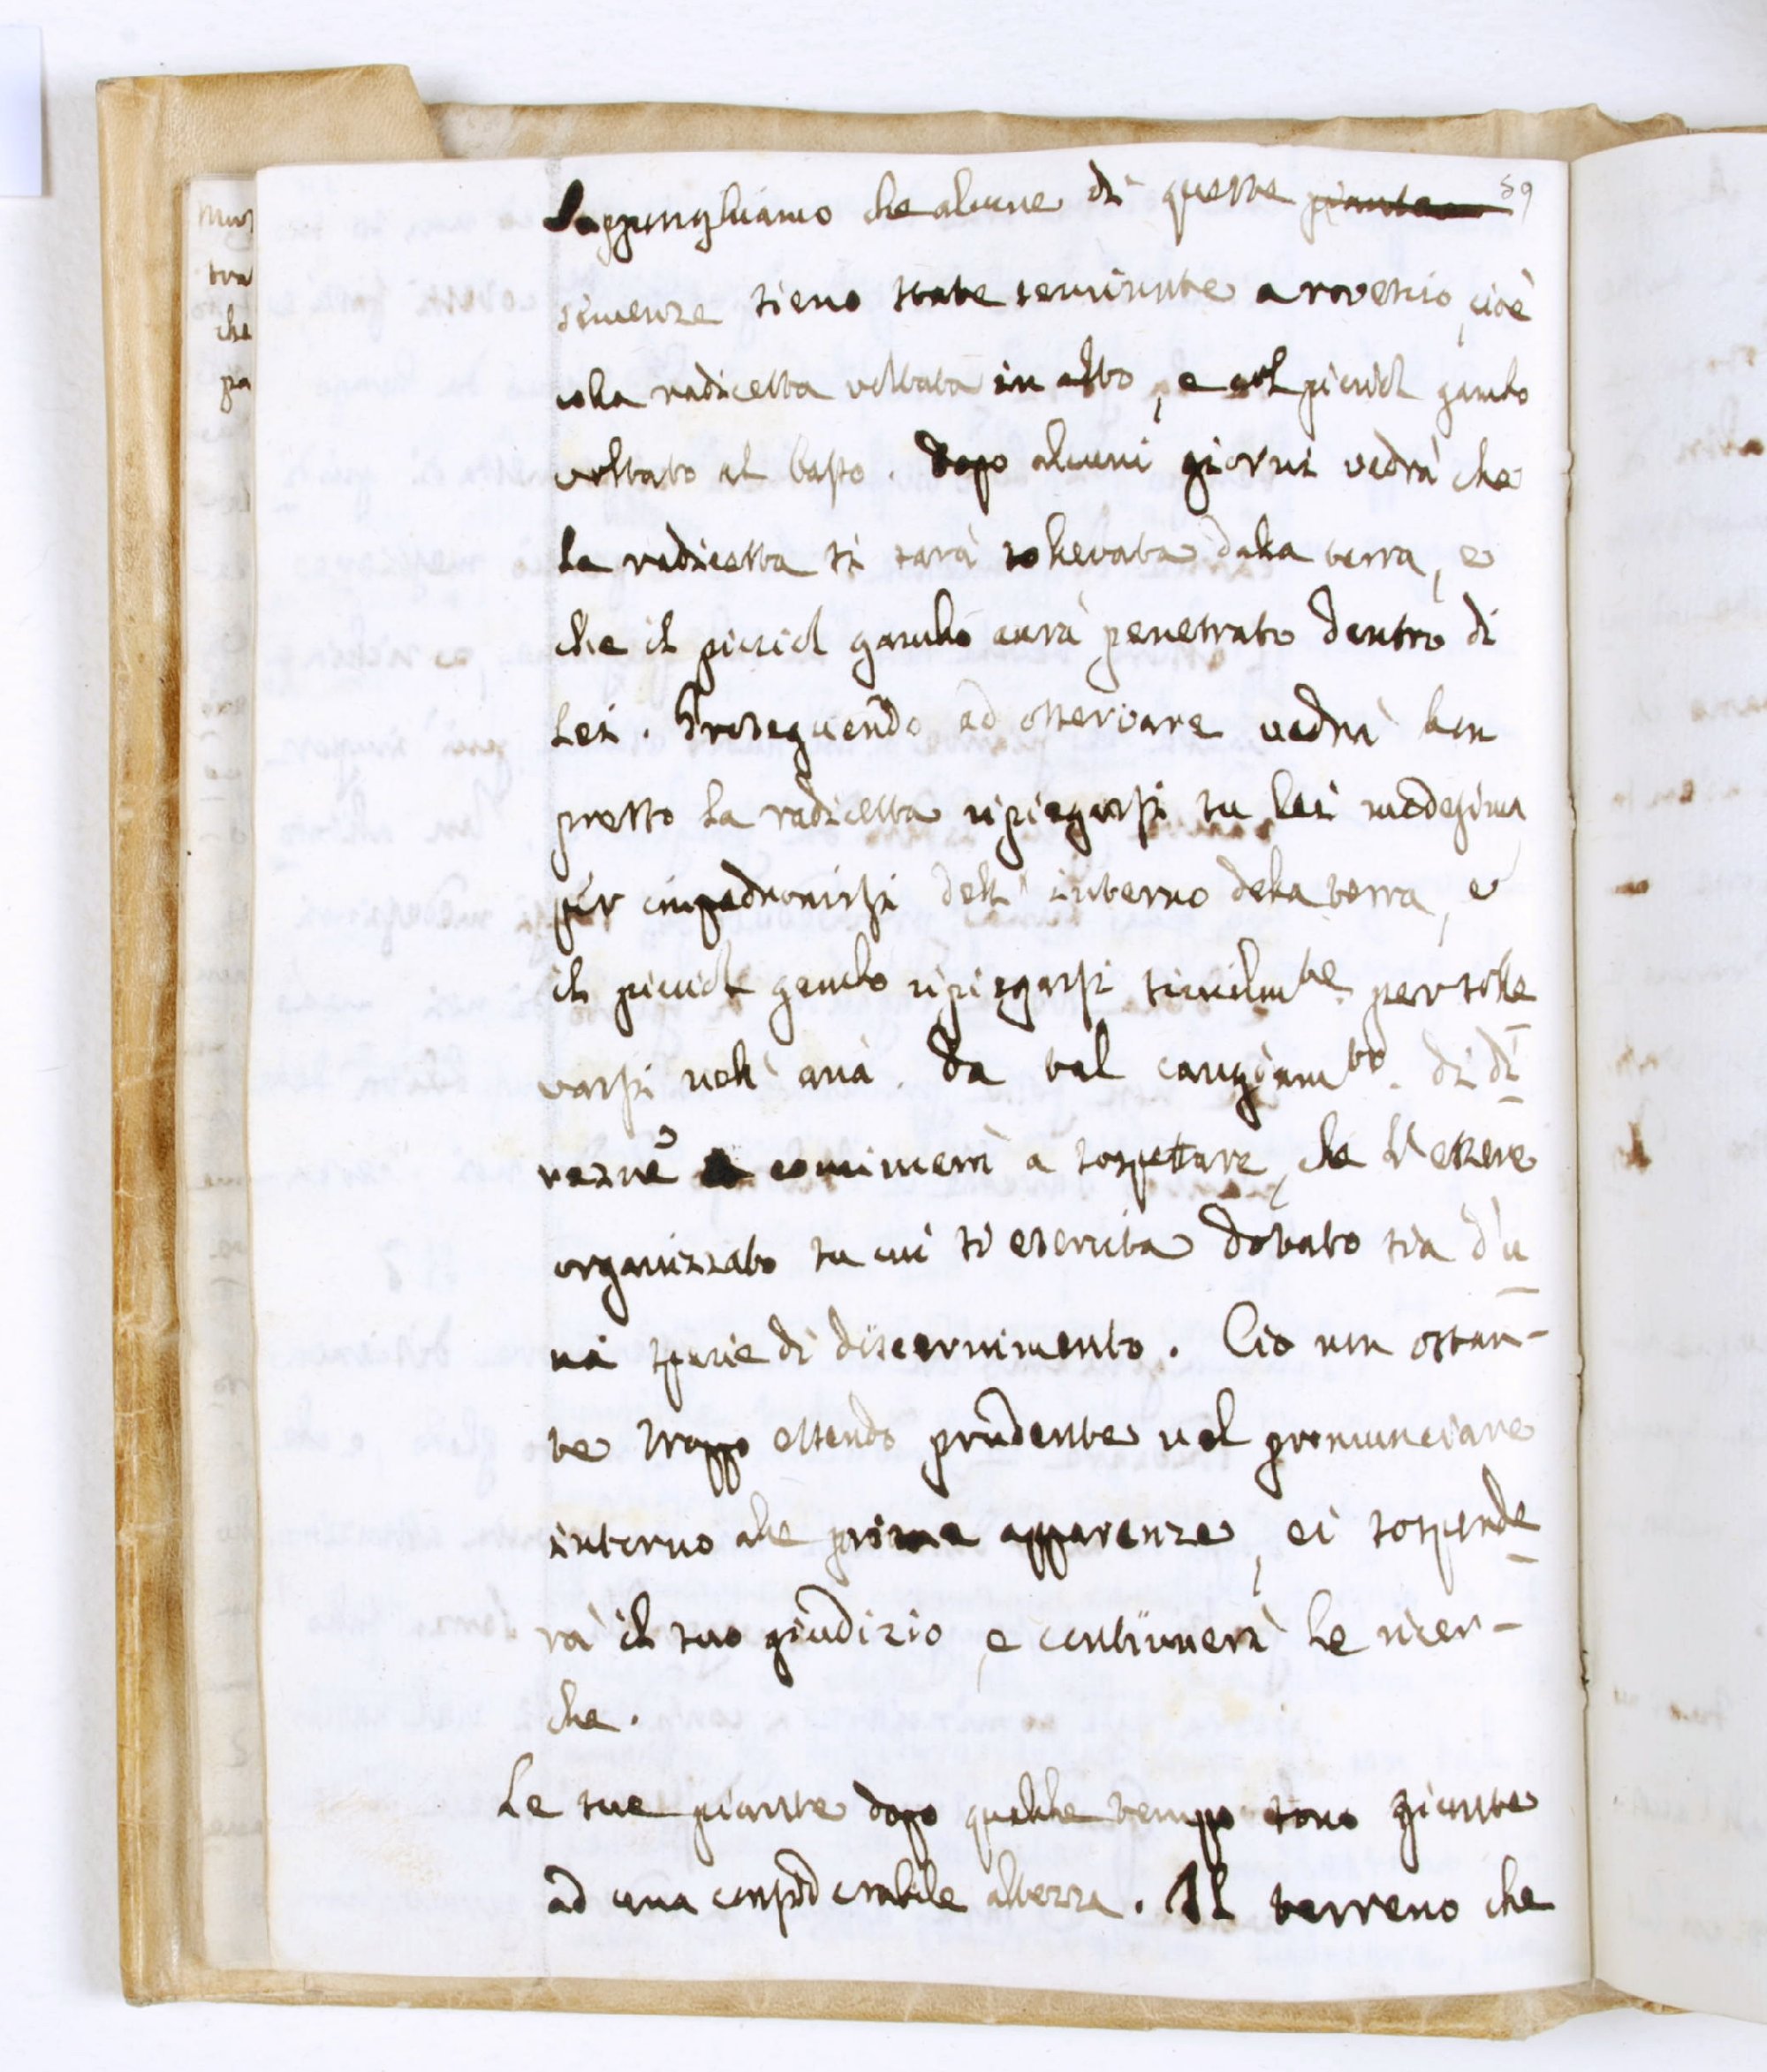 59
Supponghiamo che alcune di queste piante
semenze sieno state seminate a rovescio, cioè
colla radicetta voltata in alto, e col picciol gambo
voltato al basso. Dopo alcuni giorni vedrà che
la radicetta si sarà sollevata dalla terra, e
che il picciol gambo aurà penetrato dentro di
lei. Proseguendo ad osservare vedrà ben
presto la radicetta ripiegarsi su lei medesima
per impadronirsi dell' interno della terra, e
il picciol gambo ripiegarsi similmte. per solle
varsi nell' aria. Da tal cangiamto. di di
rezne comincierà a sospettare, che l'essere
organizzato su cui si esercita dotato sia d'u
na spezie di discernimento. Ciò non ostan-
te troppo essendo prudente nel pronunciare
intorno alle prime apparenze, ei sospende
rà il suo giudizio, e continuerà le ricer-
che.
Le sue piante dopo qualche tempo sono giunte
ad una considerabile altezza. Il terreno che
tra
che
pa